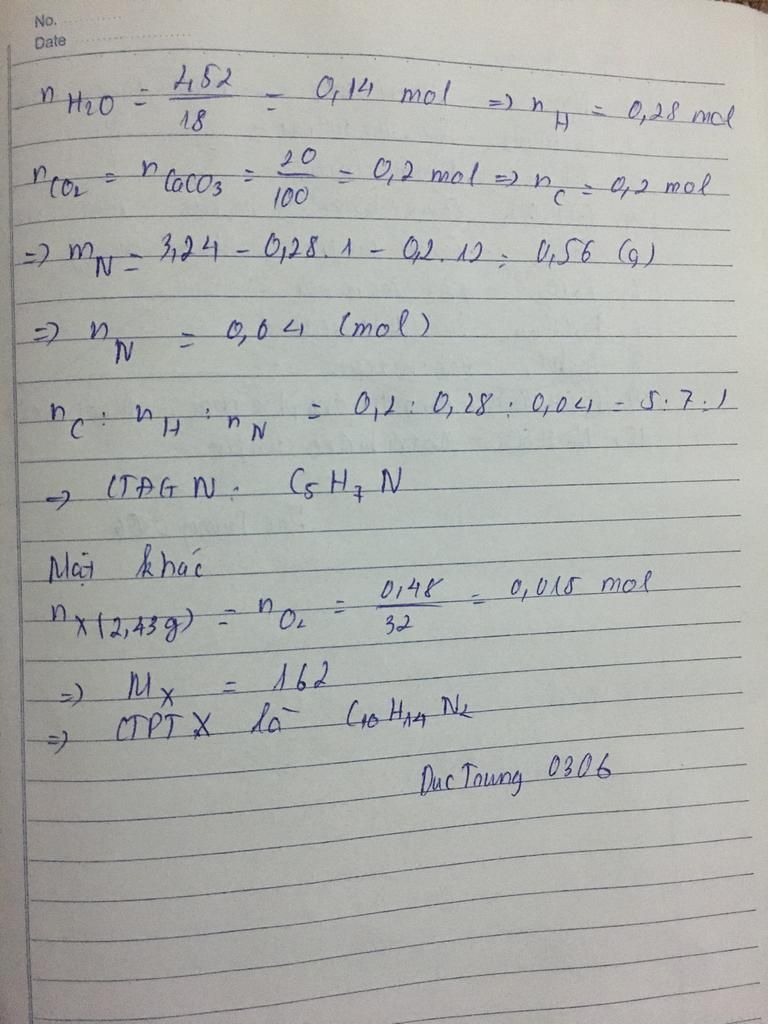 No.
Date
n H2O = 2,52/18 = 0,14 mol => n H = 0,28 mol
n CO2 = n CaCO3 = 20/100 = 0,2 mol => n C = 0,2 mol
=> m N = 3,24 - 0,28.1 - 0,2.12 = 0,56 (g)
=> n N = 0,04 (mol)
n C : n H : n N = 0,2 : 0,28 : 0,04 = 5:7:1
=> CTĐGN: C5H7N
Mặt khác
n X(2,43g) = n O2 = 0,48/32 = 0,015 mol
=> M X = 162
=> CTPT X là C10H14N2
Duc Trung 0306